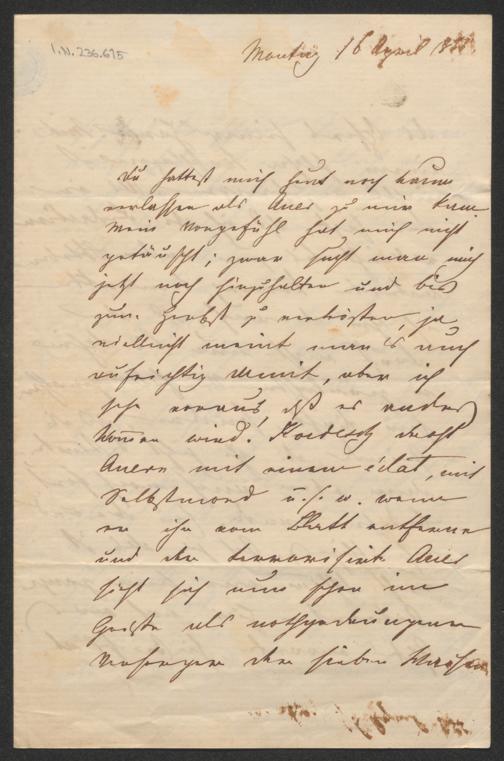 I.N. 236.675
Montag 16 April
Du hattest mich heut noch kaum
verlassen als Auer zu mir kam.
Mein Vorgefühl hat mich nicht
getäuscht; zwar sucht man mich
jetzt noch hinzuhalten und bis
zum Herbst zu vertrösten, ja
vielleicht meint man es auch
aufrichtig damit, aber ich
sehe voraus, daß es anders
kommen wird! droht
Auern mit einem éclat, mit
Selbstmord u.s.w. wenn
er ihn vom Blatt entferne
und der terrorisirte Auer
sieht sich nun schon im
Geiste als nothgedrungenen
Versorger der sieben Waisen